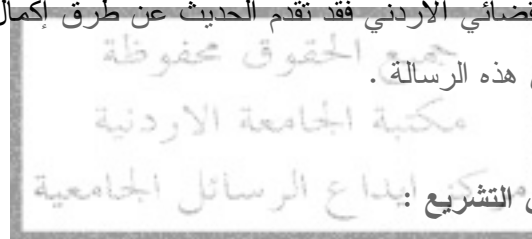 قضائي الاردني فقد تقدم الحديث عن طرق إكمال
جميع الحقوق محفوظة
هذه الرسالة .
مكتبة الجامعة الاردنية
مركز ايداع الرسائل الجامعية
التشريع :